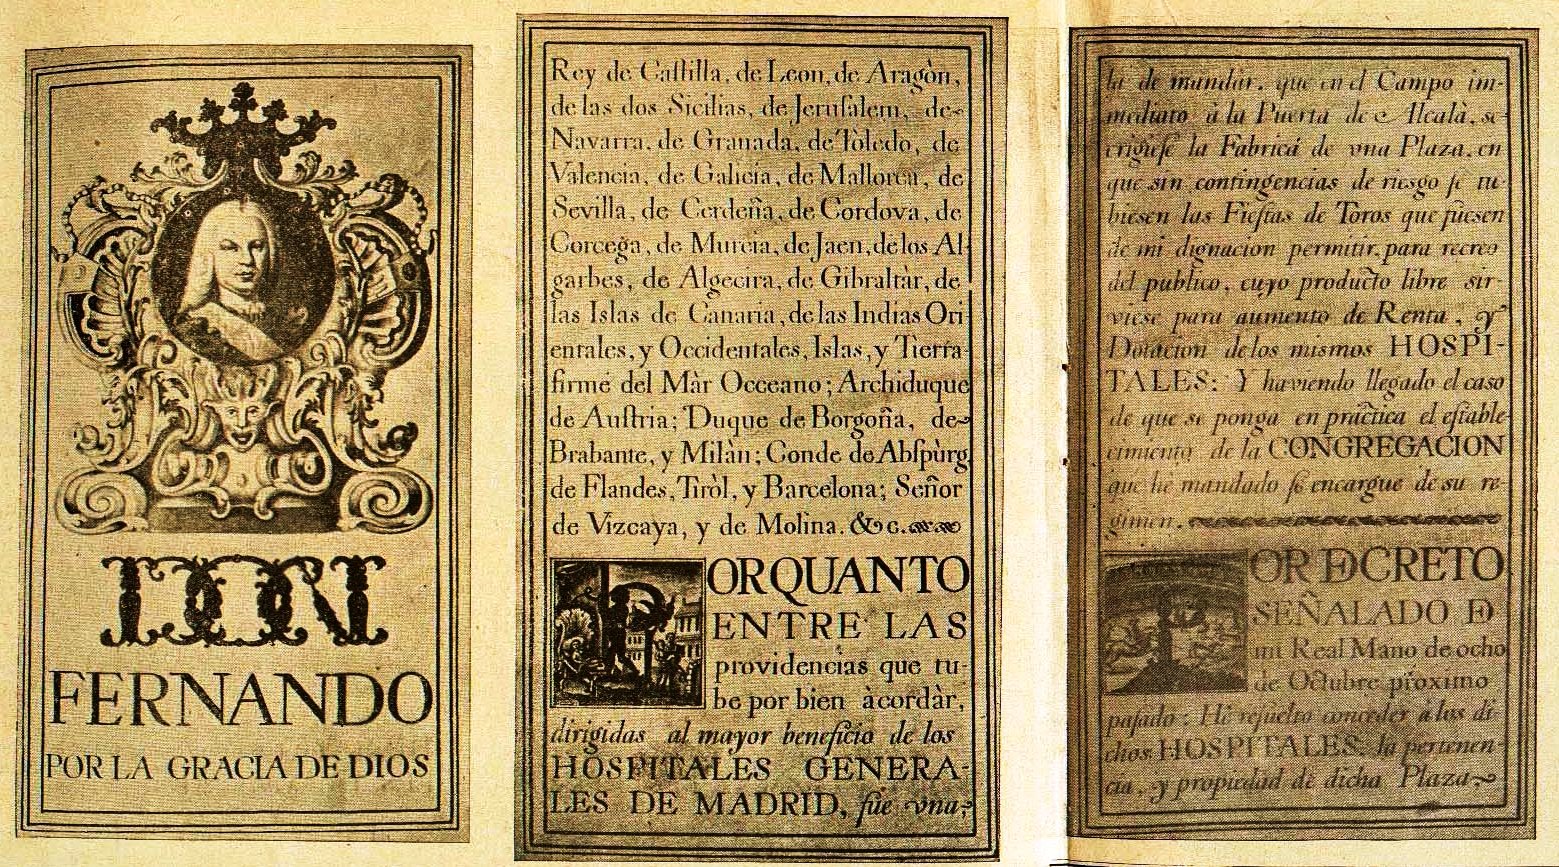 DON
FERNANDO
POR LA GRACIA DE DIOS
Rey de Castilla, de Leon, de Aragòn,
de las dos Sicilias, de Jerusalem, de
Navarra, de Granada, de Tòledo, de
Valencia, de Galicia, de Mallorca, de
Sevilla, de Cerdeña, de Cordova, de
Corcega, de Murcia, de Jaen, de los Al-
garbes, de Algecira, de Gibraltàr, de
las Islas de Canaria, de las Indias Ori
entales, y Occidentales, Islas, y Tierra-
firme del Màr Occeano; Archiduque
de Austria; Duque de Borgoña, de
Brabante, y Milàn; Conde de Abspùrg,
de Flandes, Tiròl, y Barcelona; Señor
de Vizcaya, y de Molina. &c.
PORQUANTO
ENTRE LAS
providencias que tu-
be por bien àcordàr,
dirigidas al mayor beneficio de los
HOSPITALES GENERA-
LES DE MADRID, fue vna,
la de mandàr, que en el Campo im-
mediato à la Puerta de Alcalà, se
erigiese la Fabrica de vna Plaza, en
que sin contingencias de riesgo se tu-
biesen las Fiestas de Toros que fuesen
de mi dignacion permitir, para recreo
del publico, cuyo producto libre sir-
viese para aumento de Renta, y
Dotacion de los mismos HOSPI-
TALES: Y haviendo llegado el caso
de que se ponga en practica el estable-
cimiento de la CONGREGACION
que he mandado se encargue de su re-
gimen.
POR DECRETO
SEÑALADO DE
mi Real Mano de ocho
de Octubre pròximo
pasado: He resuelto conceder à los di
chos HOSPITALES, la pertenen-
cia, y propiedad de dicha Plaza